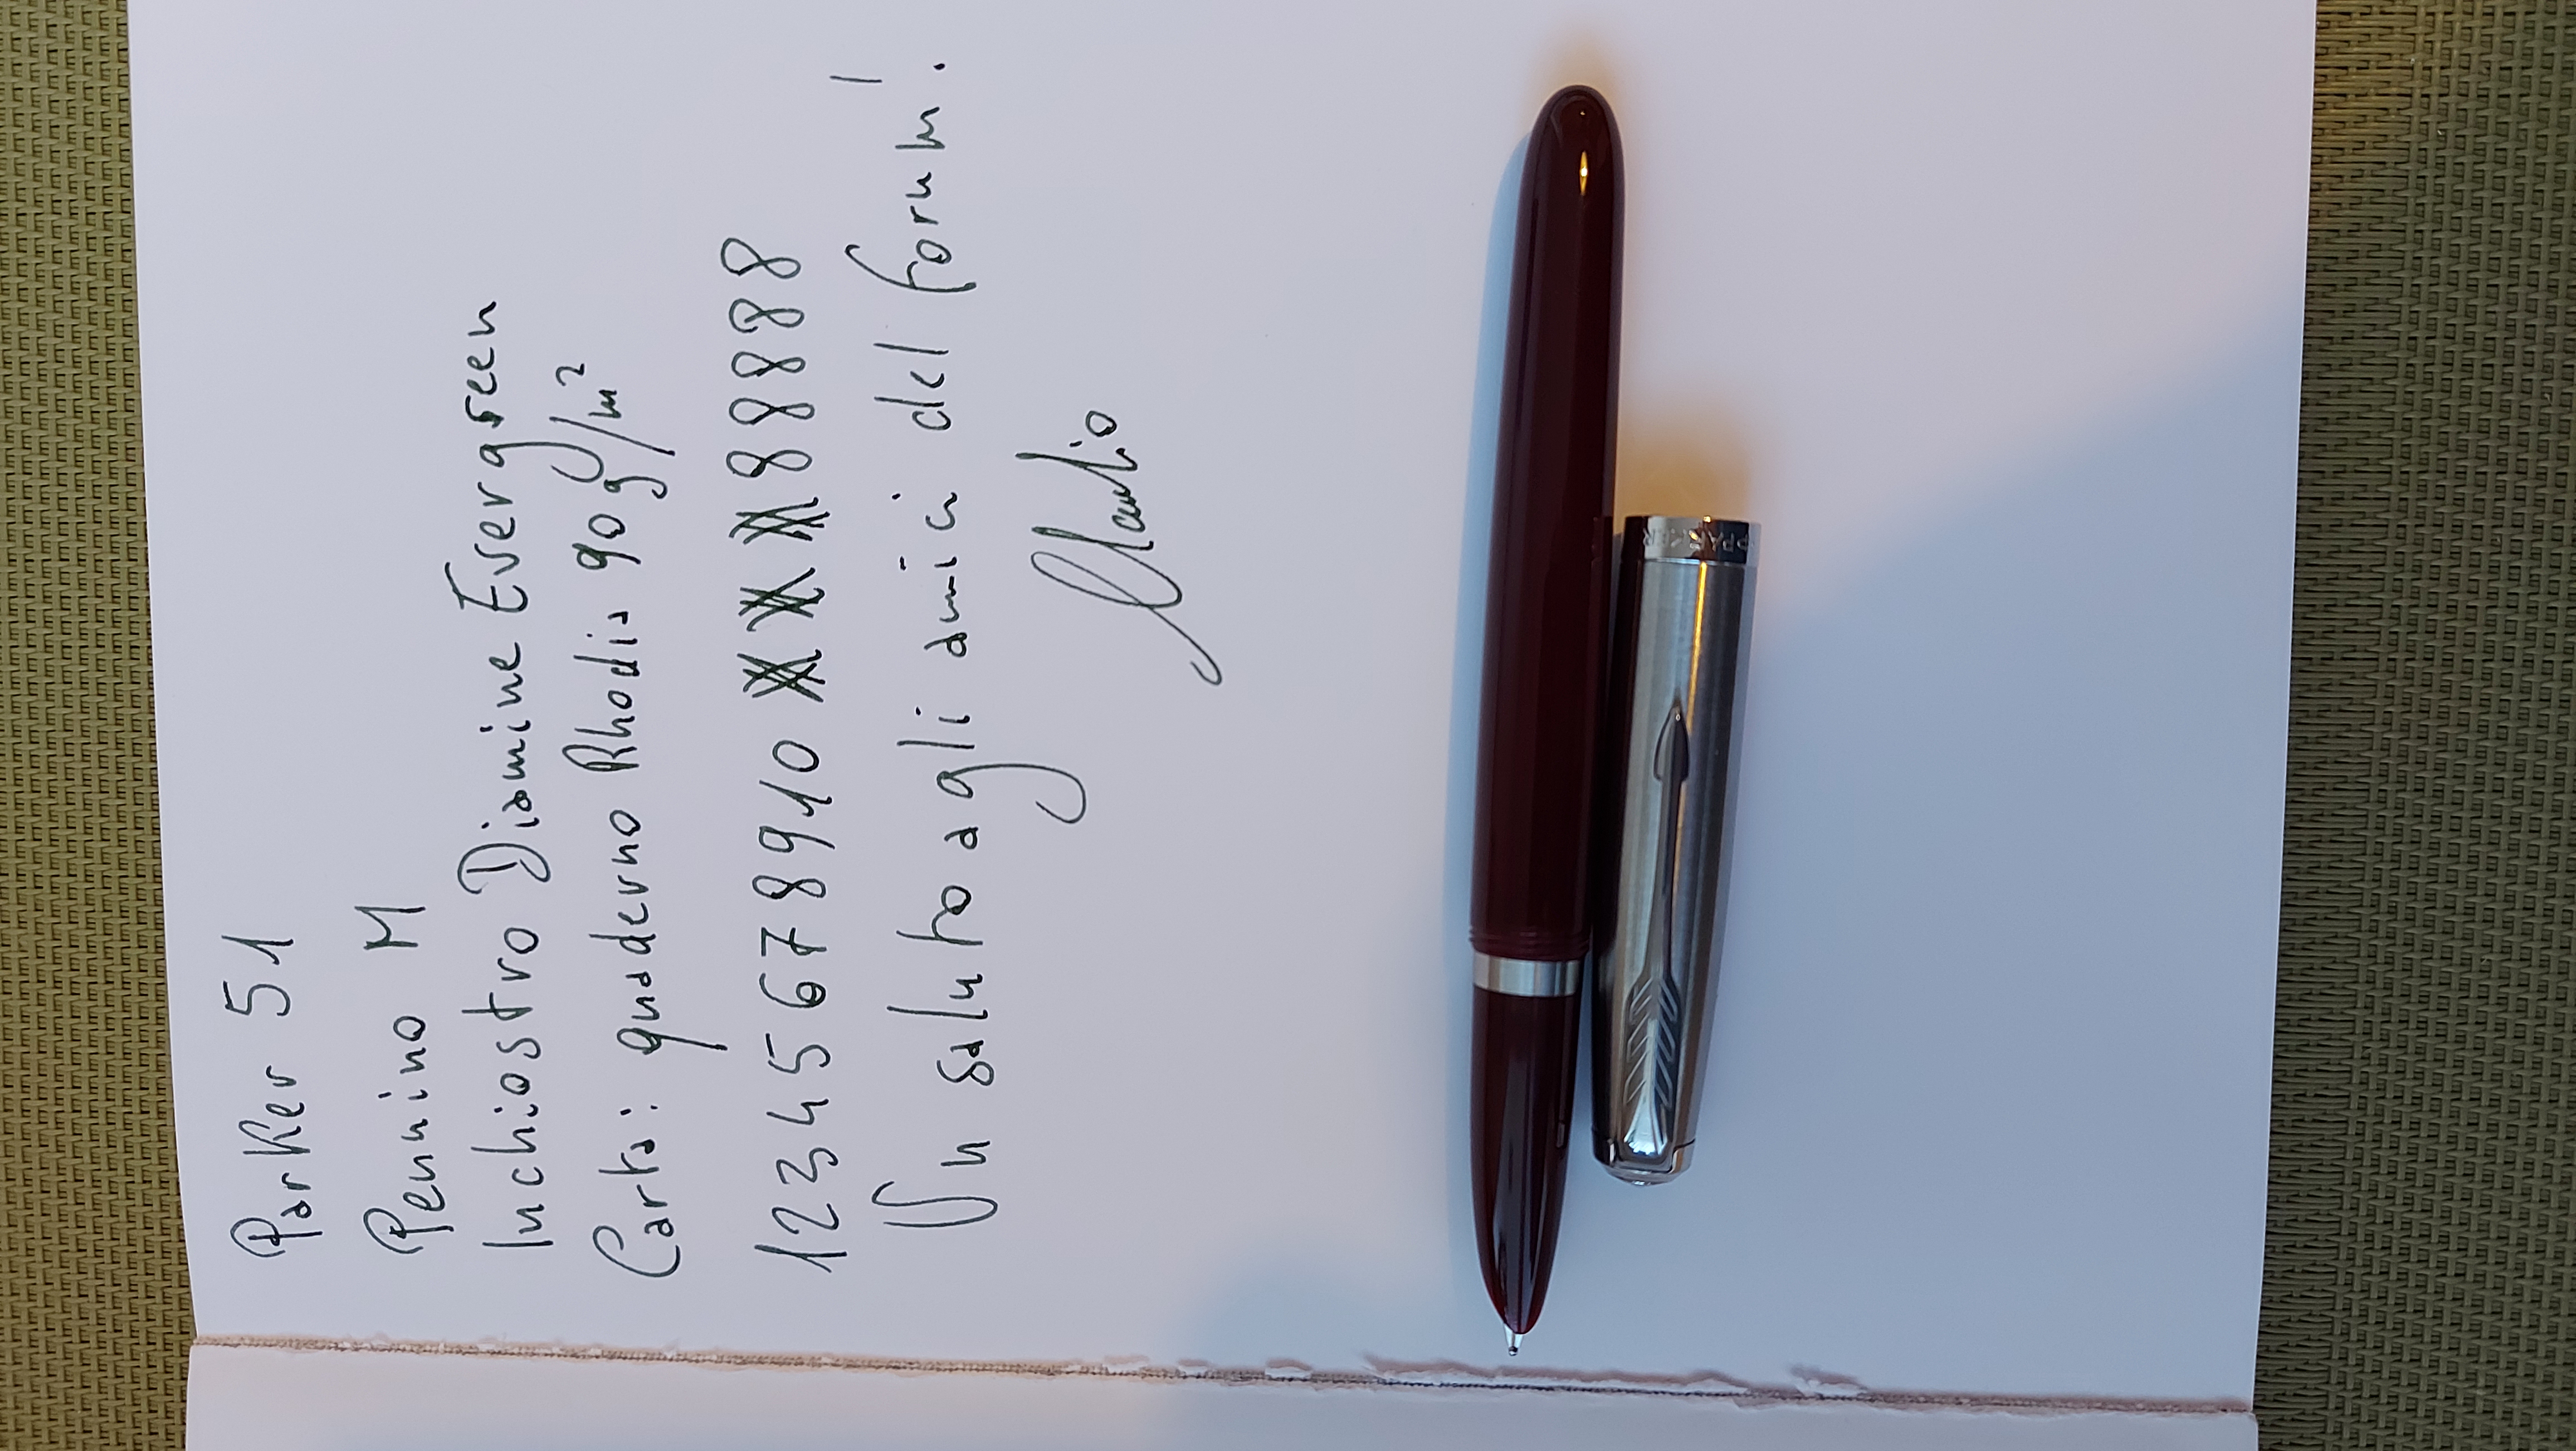 Parker 51
Pennino M
Inchiostro Diamine Evergreen
Carta: quaderno Rhodia 90 g/m²
12345678910 XXX XXX XXX 88888
Un saluto agli amici del forum!
Claudio
PARKER